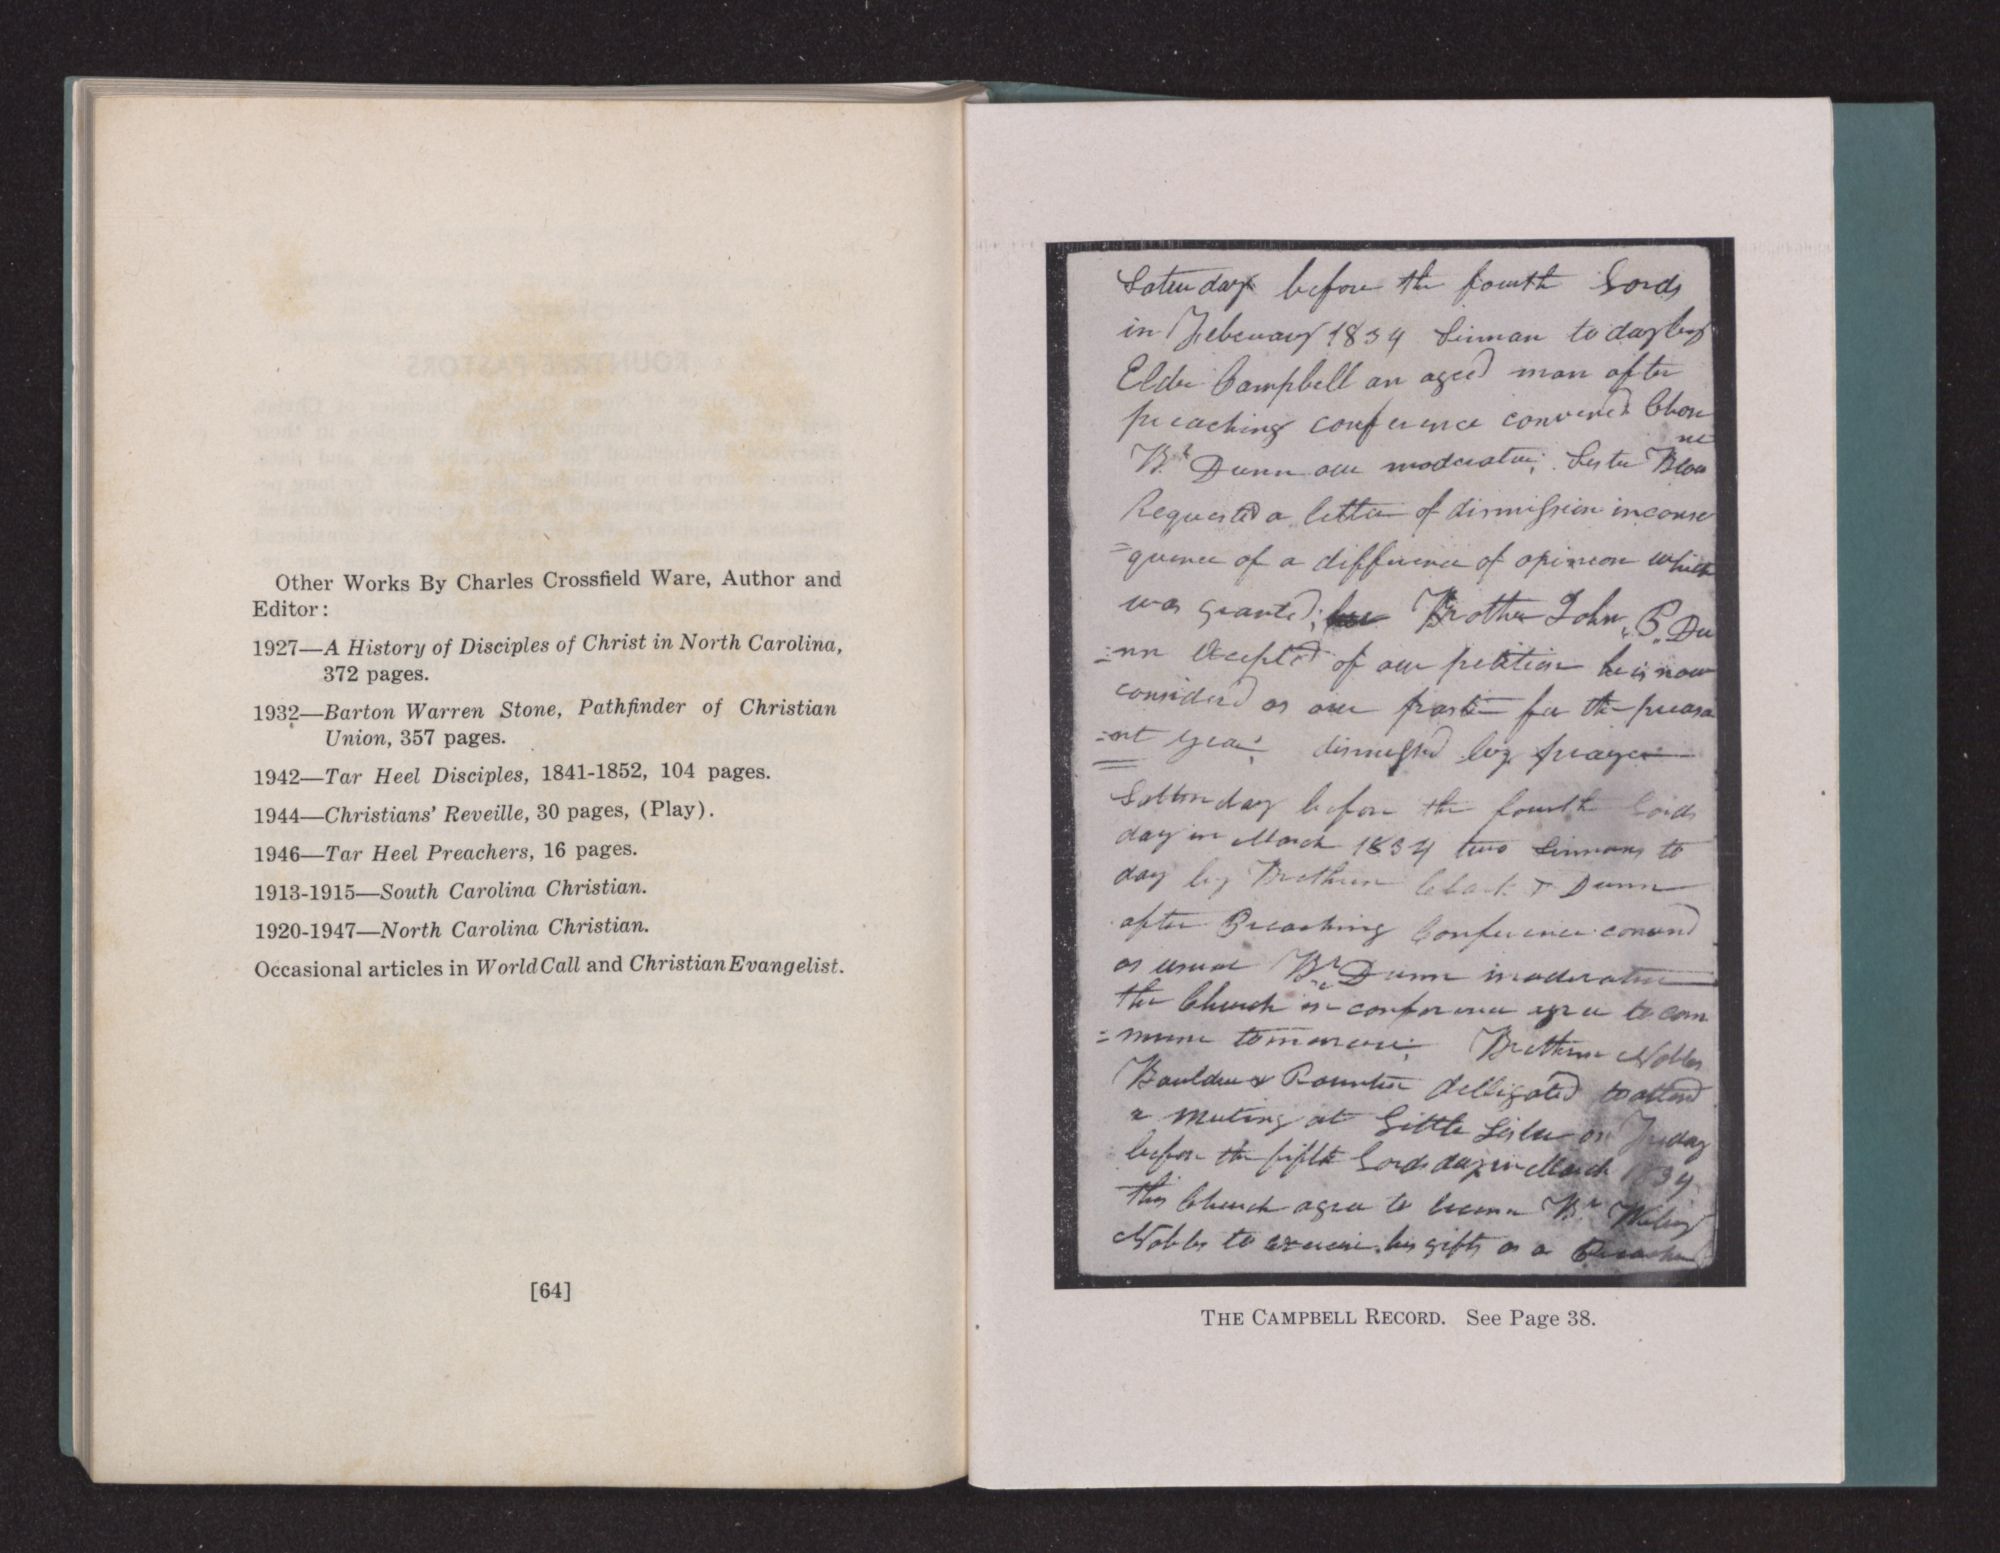 Other Works By Charles Crossfield Ware, Author and
Editor:
1927—A History of Disciples of Christ in North Carolina,
372 pages.
1932—Barton Warren Stone, Pathfinder of Christian
Union, 357 pages.
1942—Tar Heel Disciples, 1841-1852, 104 pages.
1944—Christians' Reveille, 30 pages, (Play).
1946—Tar Heel Preachers, 16 pages.
1913-1915—South Carolina Christian.
1920-1947—North Carolina Christian.
Occasional articles in World Call and Christian Evangelist.
[64]
Saturday before the fourth Lords
in February 1834 Sirman to day by
Elder Campbell an aged man after
preaching conference convened Chose
Br Dunn our moderator; Sister
Requested a letter of dismission in conse
=quence of a difference of opinion which
was granted; Brother John P. Du
=nn excepted of our petition he is now
considerd as our paster for the preasa
=nt year; dismissed by prayer
before the fourth Lords
day in March 1834 two Sirmans to
day by Brethren Clark & Dunn
after Preaching Conference convend
as usual Br Dunn moderator
the Church in conference agree to com
=mune tomorrow; Brethren Nobles
& Rountree delligated to attend
a meeting at Little Sister on Friday
before the fifth Lords day in March 1834
this Church agree to licence Br Wiley
Nobles to exercise his gifts as a Preacher
THE CAMPBELL RECORD. See Page 38.